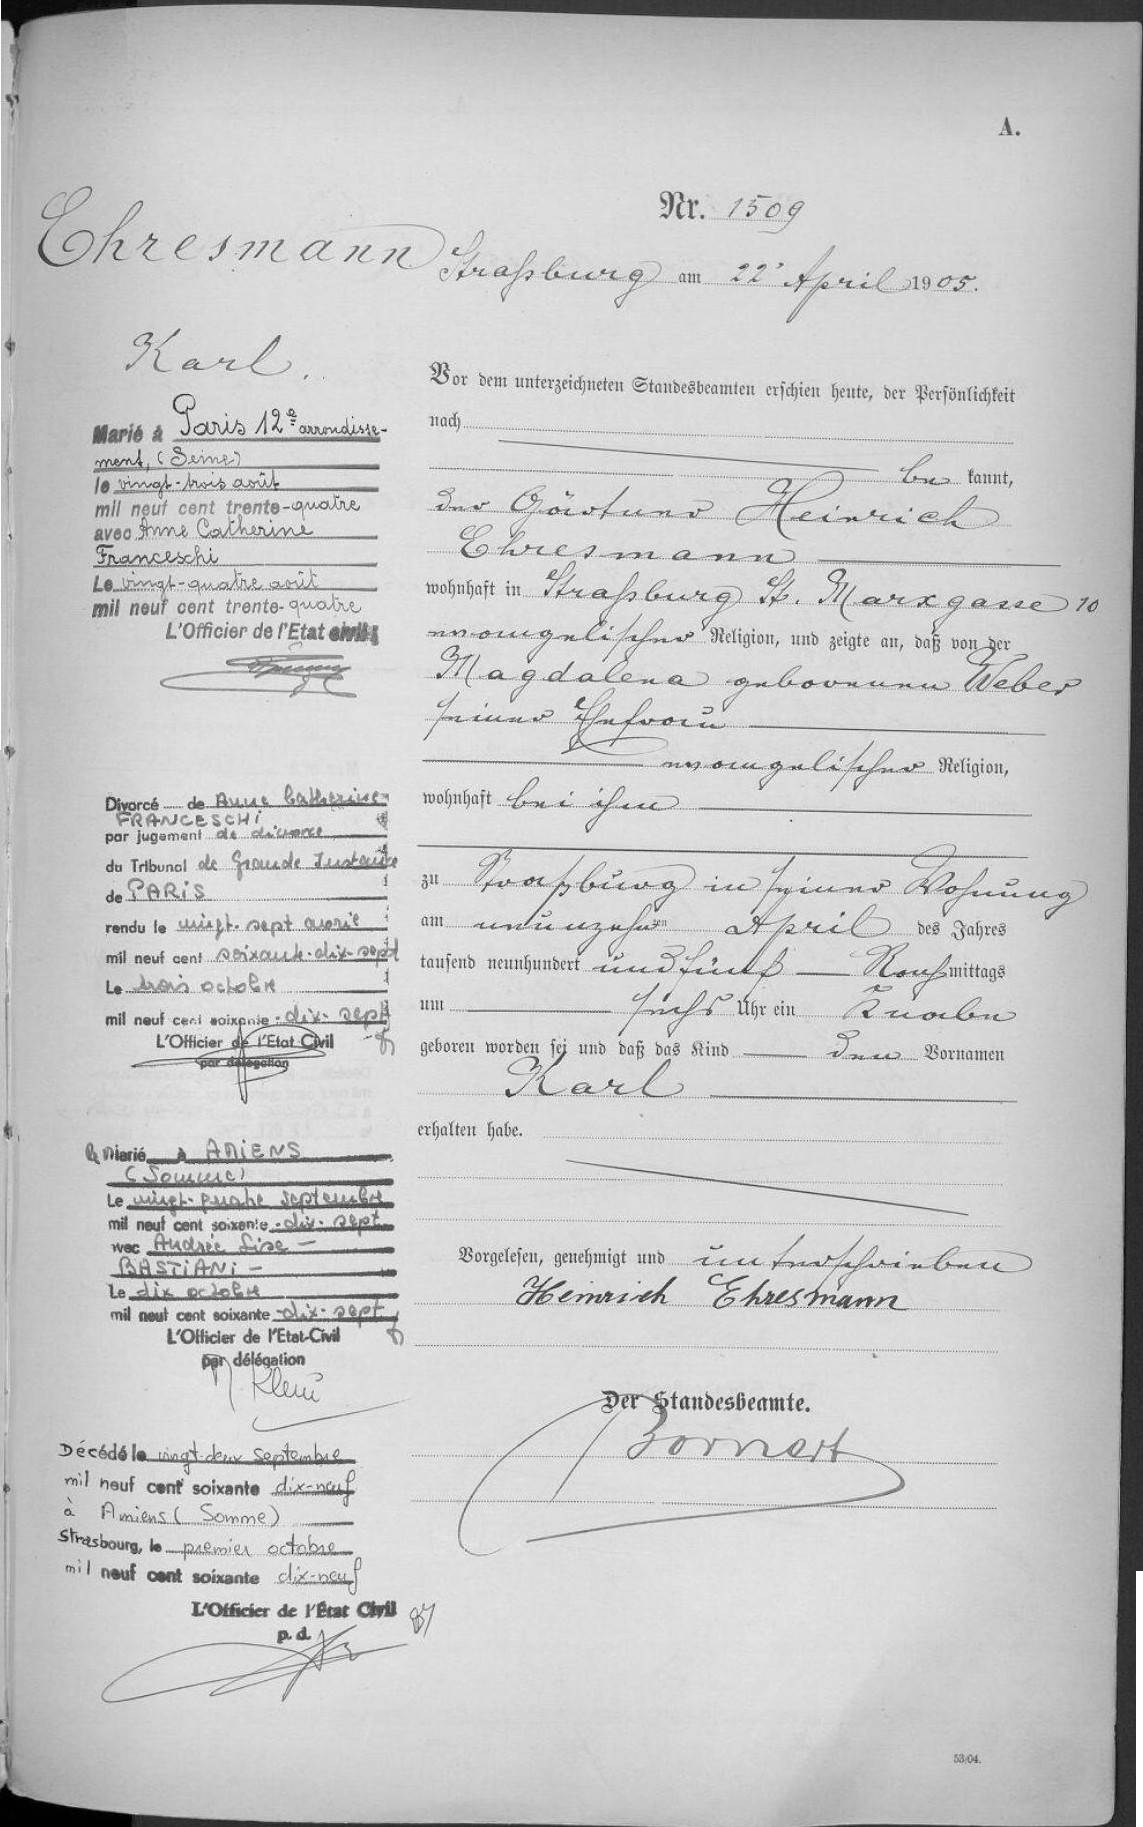 A.
Nr. 1509
Ehresmann
Straßburg am 22. April 1905.
Karl.
Marié à Paris 12e arrondisse-
ment, (Seine)
le vingt-trois août
mil neuf cent trente-quatre
avec Anne Catherine
Franceschi
Le vingt-quatre août
mil neuf cent trente-quatre
L'Officier de l'Etat civil:
Divorcé de Anne Catherine
FRANCESCHI
par jugement de divorce
du Tribunal de Grande Instance
de PARIS
rendu le vingt-sept avril
mil neuf cent soixante-dix-sept
Le trois octobre
mil neuf cent soixante-dix-sept
L'Officier de l'Etat Civil
par délégation
Marié à AMIENS
(Somme)
Le vingt-quatre septembre
mil neuf cent soixante-dix-sept
avec Andrée Lise
BASTIANI
Le dix octobre
mil neuf cent soixante-dix-sept
L'Officier de l'Etat-Civil
par délégation
Décédé le vingt-deux septembre
mil neuf cent soixante dix-neuf
à Amiens (Somme)
Strasbourg, le premier octobre
mil neuf cent soixante dix-neuf
L'Officier de l'État Civil
p. d.
Vor dem unterzeichneten Standesbeamten erschien heute, der Persönlichkeit
nach
be kannt,
der Gärtner Heinrich
Ehresmann
wohnhaft in Straßburg St. Marxgasse 10
evangelischer Religion, und zeigte an, daß von der
Magdalena geborenen Weber
seiner Ehefrau
evangelischer Religion,
wohnhaft bei ihm
zu Straßburg in seiner Wohnung
am neunzehnten April des Jahres
tausend neunhundert und fünf Nachmittags
um sechs Uhr ein Knabe
geboren worden sei und daß das Kind den Vornamen
Karl
erhalten habe.
Vorgelesen, genehmigt und unterschrieben
Heinrich Ehresmann
Der Standesbeamte.
53/04.